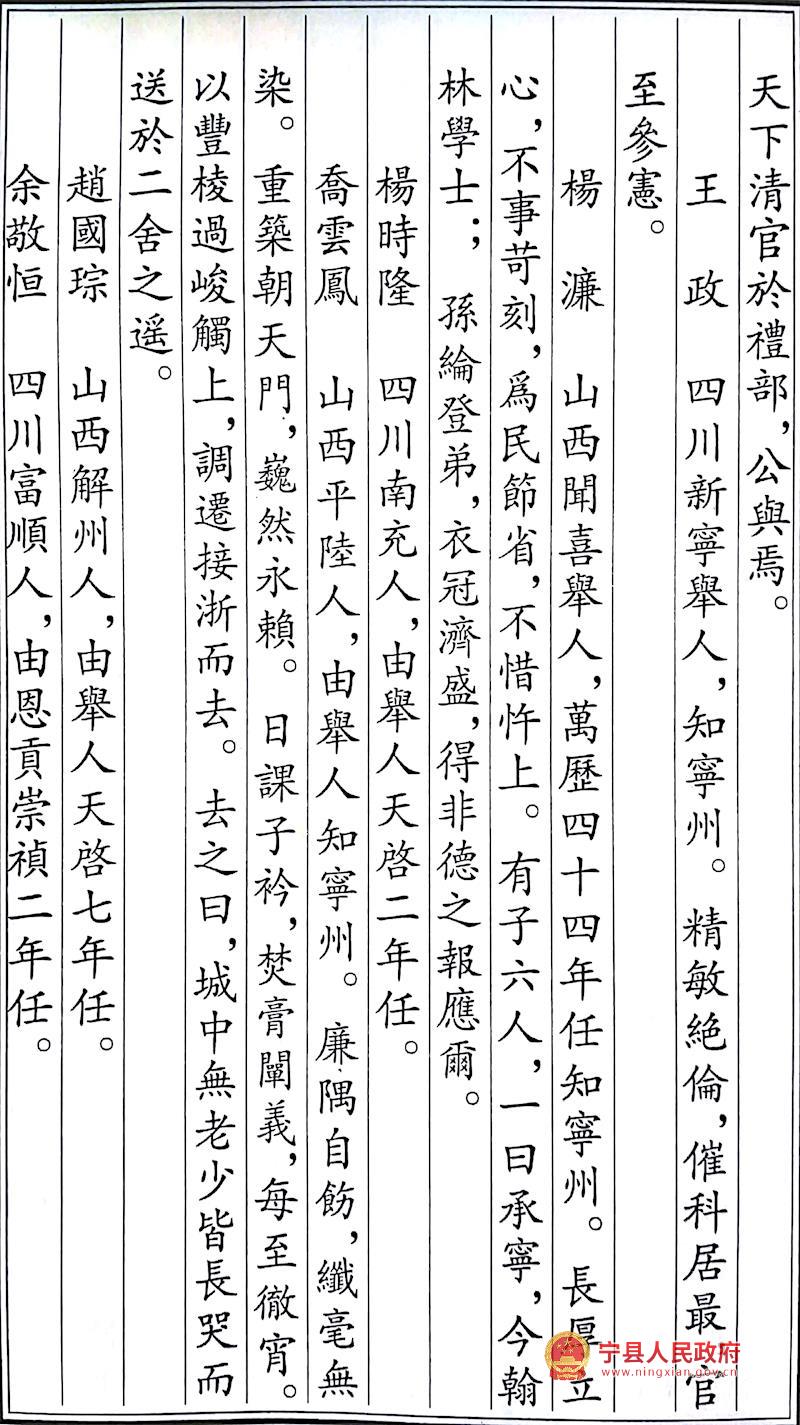 天下清官於禮部，公與焉。
王　政　四川新寧舉人，知寧州。精敏絕倫，催科居最，官
至參憲。
楊　濂　山西聞喜舉人，萬歷四十四年任知寧州。長厚立
心，不事苛刻，爲民節省，不惜忤上。有子六人，一曰承寧，今翰
林學士；孫綸登弟，衣冠濟盛，得非德之報應爾。
楊時隆　四川南充人，由舉人天啓二年任。
喬雲鳳　山西平陸人，由舉人知寧州。廉隅自飭，纖毫無
染。重築朝天門，巍然永賴。日課子衿，焚膏闡義，每至徹宵。
以豐棱過峻觸上，調遷接浙而去。去之曰，城中無老少皆長哭而
送於二舍之遥。
趙國琮　山西解州人，由舉人天啓七年任。
余敬恒　四川富順人，由恩貢崇禎二年任。
宁县人民政府
www.ningxian.gov.cn